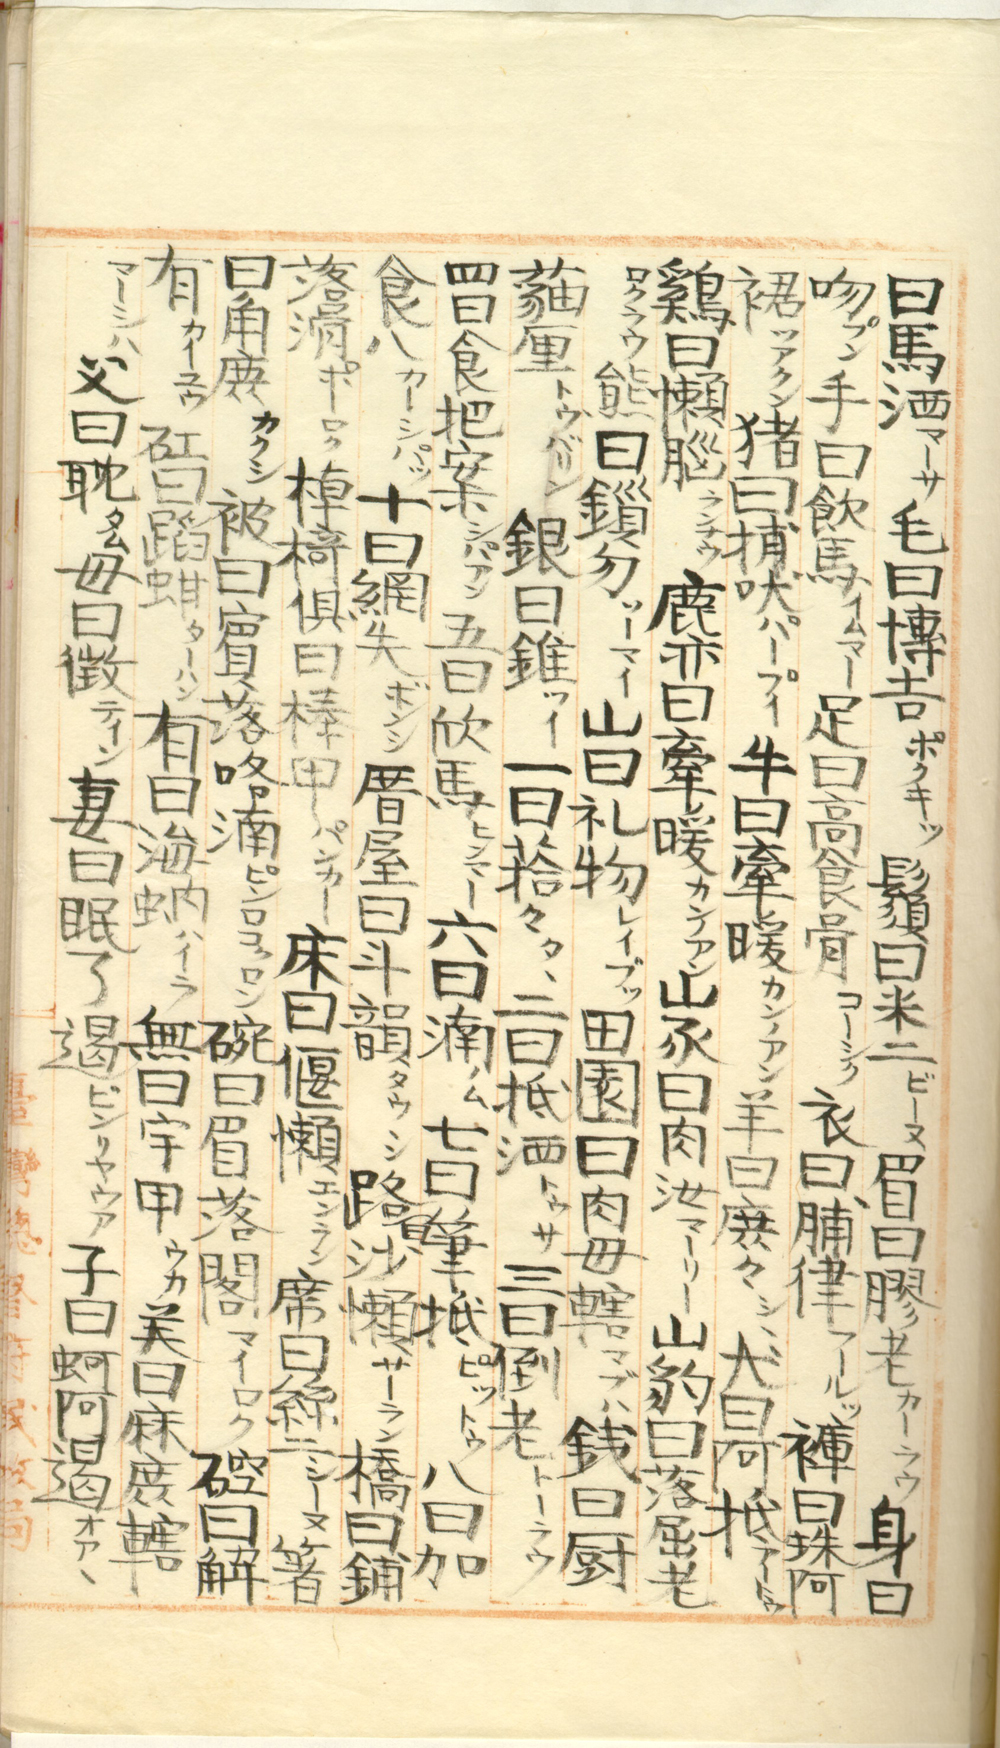 曰馬洒マーサ 毛曰博吉ポクキツ 鬚曰米二ビーヌ 眉曰膠老カーラウ 身曰
吻プン 手曰飲馬ナイムマー 足曰高食骨コーシク 衣曰脯律フールツ 褲曰珠阿
裙ツアクン 猪曰捕吠パープイ 牛曰牽暖カンノアン 羊曰庶々シ、 犬曰阿抵アートウ
鷄曰懶腦ランナウ 鹿亦曰牽暖カンノアン 山豕曰肉汝マーリー 山豹曰落屈老
ロクラウ 熊曰鎦勿ツーマイ 山曰礼物レイブツ 田園曰肉毋轄マブハ 銭曰厨
貓厘トウバリン 銀曰錐ツイ 一曰拾々タ、 二曰抵洒トウサ 三曰倒老トーラウ
四曰食把案シパアン 五曰欣馬ヒンマー 六曰湳ナム 七曰肇抵ピツトウ 八曰加
食八カーシパツ 十曰網失ボンシ 厝屋曰斗韻タウシ 路曰沙懶サーラン 橋曰鋪
落滑ポーロク 棹椅俱曰棒甲パンカー 床曰偃懶エンラン 席曰絲二シーヌ 箸
曰角庶カクシ 被曰賓落咯湳ピンロコクロン 碗曰眉落閣マイロク 硿曰解
有カイユウ 矼曰蹈蚶ターハン 有曰海蚋ハイラ 無曰宇甲ウカ 美曰麻庶轄
マーシハ 父曰耽タム 毋曰徴ティン 妻曰眠了遏ピンリヤウア 子曰蚵阿遏オア、